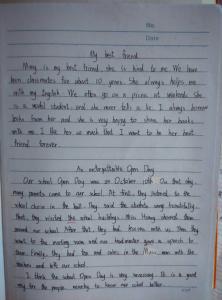 No.
Date
My best friend
Mary is my best friend, she is kind to me. We have
been classmates for about 10 years. She always helps me
with my English. We often go on a picnic at weekends. She
is a model student, and she never tells a lie. I always borrow
books from her and she is very happy to share her books
with me. I like her so much that I want to be her best
friend forever.
An unforgettable Open Day
Our school Open Day was on October 10th. On that day
many parents came to our school. At first, they listened to the
school choir in the hall. They said the students sang beautifully.
that, they visited the school buildings. Miss Huang showed them
around our school. After that, they had lessons with us. Then they
went to the meeting room and our headmaster gave a speech to
them. Finally, they had tea and cakes in the room with the
teachers and left our school.
I think the school Open Day is very necessary. It is a good
way for the people nearby to know our school better.